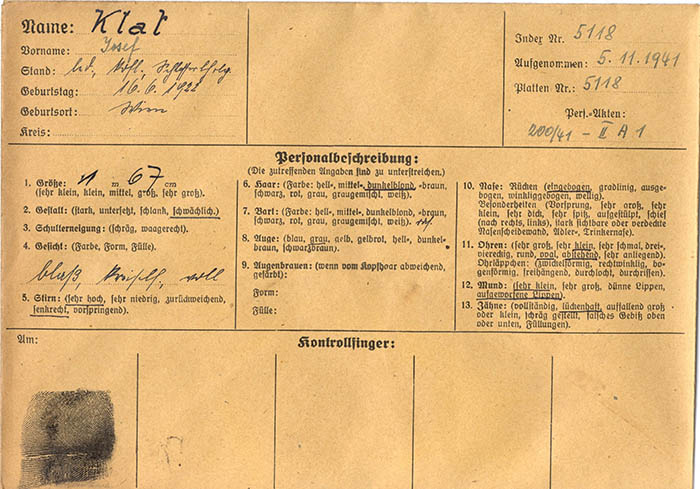 Name: Klat
Vorname: Josef
Stand: led., kfl.,
Geburtstag: 16. 6. 1922
Geburtsort: Wien
Kreis:
Index Nr. 5118
Aufgenommen: 5. 11. 1941
Platten Nr.: 5118
Pers.-Akten:
200/41 - II A 1
Personalbeschreibung:
(Die zutreffenden Angaben sind zu unterstreichen.)
1. Größe: 1 m 67 cm
(sehr klein, klein, mittel, groß, sehr groß).
2. Gestalt: (stark, untersetzt, schlank, schwächlich.)
3. Schulterneigung: (schräg, waagerecht).
4. Gesicht: (Farbe, Form, Fülle).
blaß, voll
5. Stirn: (sehr hoch, sehr niedrig, zurückweichend,
senkrecht, vorspringend).
6. Haar: (Farbe: hell-, mittel-, dunkelblond, -braun,
schwarz, rot, grau, graugemischt, weiß).
7. Bart: (Farbe: hell-, mittel-, dunkelblond, -braun,
schwarz, rot, grau, graugemischt, weiß).
8. Auge: (blau, grau, gelb, gelbrot, hell-, dunkel-
braun, schwarzbraun).
9. Augenbrauen: (wenn vom Kopfhaar abweichend,
gefärbt):
Form:
Fülle:
10. Nase: Rücken (eingebogen, gradlinig, ausge-
bogen, winkliggebogen, wellig).
Besonderheiten (Vorsprung, sehr groß, sehr
klein, sehr dick, sehr spitz, aufgestülpt, schief
(nach rechts, links), stark sichtbare oder verdeckte
Nasenscheidewand, Adler-, Trinkernase).
11. Ohren: (sehr groß, sehr klein, sehr schmal, drei-,
viereckig, rund, oval, abstehend, sehr anliegend).
Ohrläppchen: (zwickelförmig, rechtwinklig, bo-
genförmig, freihängend, durchlocht, durchrissen).
12. Mund: (sehr klein, sehr groß, dünne Lippen,
aufgeworfene Lippen).
13. Zähne: (vollständig, lückenhaft, auffallend groß
oder klein, schräg gestellt, falsches Gebiß oben
oder unten, Füllungen).
Am:
Kontrollfinger: